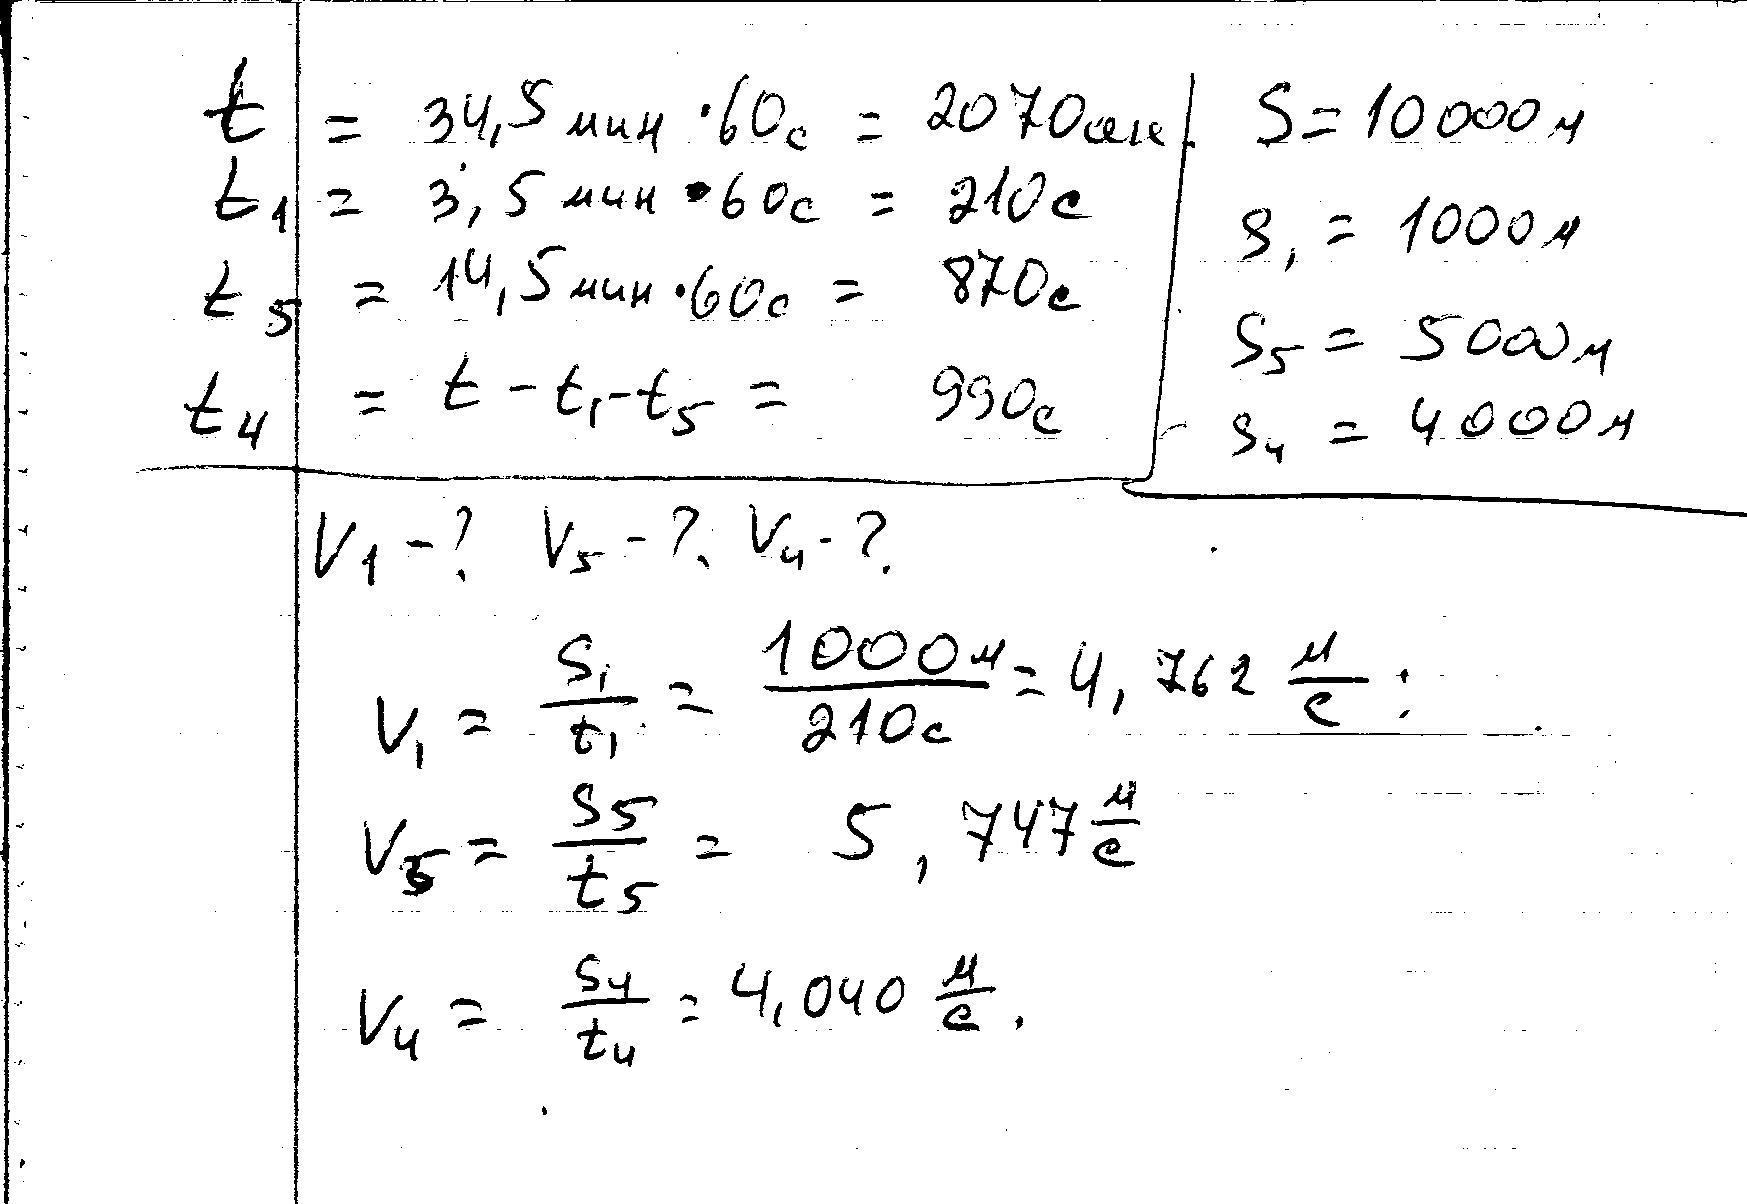 t = 34,5 мин · 60с = 2070сек.
t1 = 3,5 мин · 60с = 210с
t5 = 14,5 мин · 60с = 870с
t4 = t - t1 - t5 = 990с
S = 10000м
S1 = 1000м
S5 = 5000м
S4 = 4000м
V1 - ? V5 - ? V4 - ?
V1 = S1/t1 = 1000м/210с = 4,762 м/с ;
V5 = S5/t5 = 5,747 м/с
V4 = S4/t4 = 4,040 м/с.